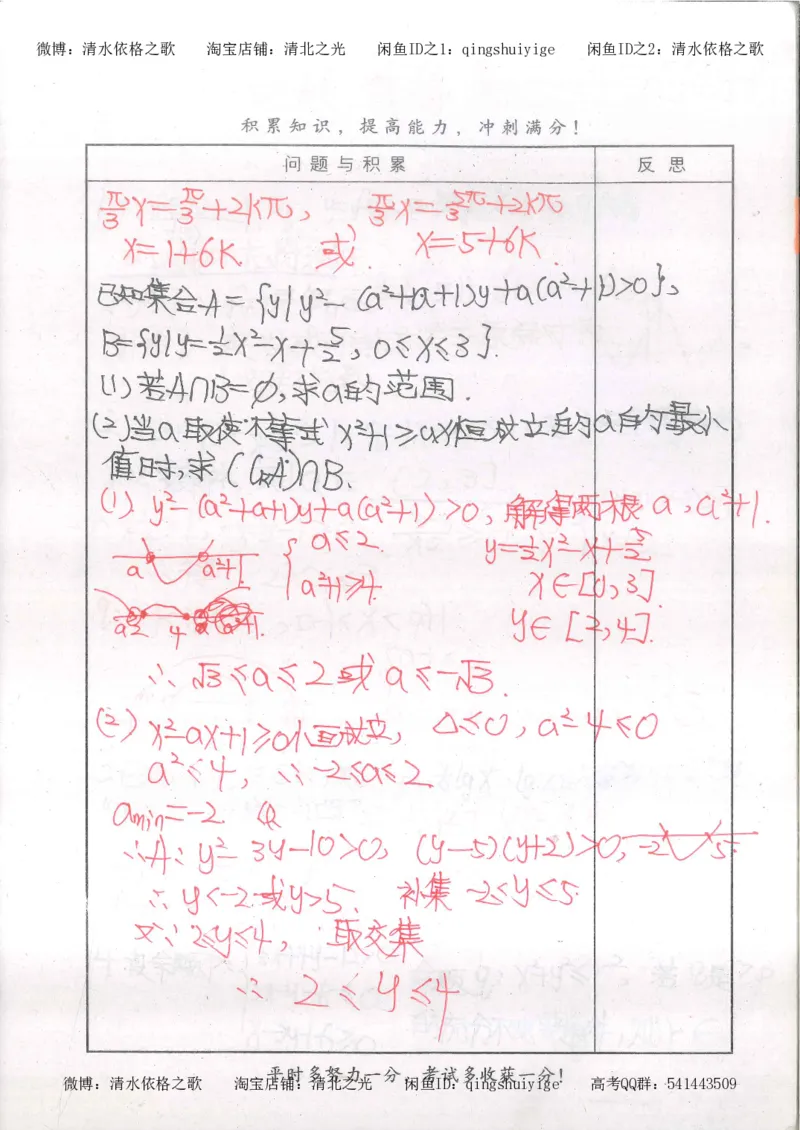 微博：清水依格之歌 淘宝店铺：清北之光 闲鱼ID之1：qingshuiyige 闲鱼ID之2：清水依格之歌
积累知识，提高能力，冲刺满分！
问题与积累 反思
π/3 x=π/3+2kπ, π/3 x=5π/3+2kπ
x=1+6k 或 x=5+6k
已知集合A={y|y²-(a²+a+1)y+a(a²+1)>0},
B={y|y=½x²-x+5/2, 0≤x≤3}.
(1)若A∩B=∅,求a的范围.
(2)当a取使不等式x²+1≥ax恒成立的a的最小
值时,求(∁RA)∩B.
(1) y²-(a²+a+1)y+a(a²+1)>0, 解得两根a, a²+1.
a a²+1 { a≤2 y=½x²-x+5/2
a²+1≥4. x∈[0,3]
a 2 4 a²+1. y∈[2,4].
∴ √3≤a≤2或a≤-√3.
(2) x²-ax+1≥0恒成立, Δ≤0, a²-4≤0
a²≤4, ∴-2≤a≤2
amin=-2
∴A: y²-3y-10>0, (y-5)(y+2)>0, -2 5
∴y<-2或y>5. 补集 -2≤y≤5
又∵2≤y≤4, 取交集
∴ 2≤y≤4
平时多努力一分，考试多收获一分！
微博：清水依格之歌 淘宝店铺：清北之光 闲鱼ID之1：qingshuiyige 高考QQ群：541443509